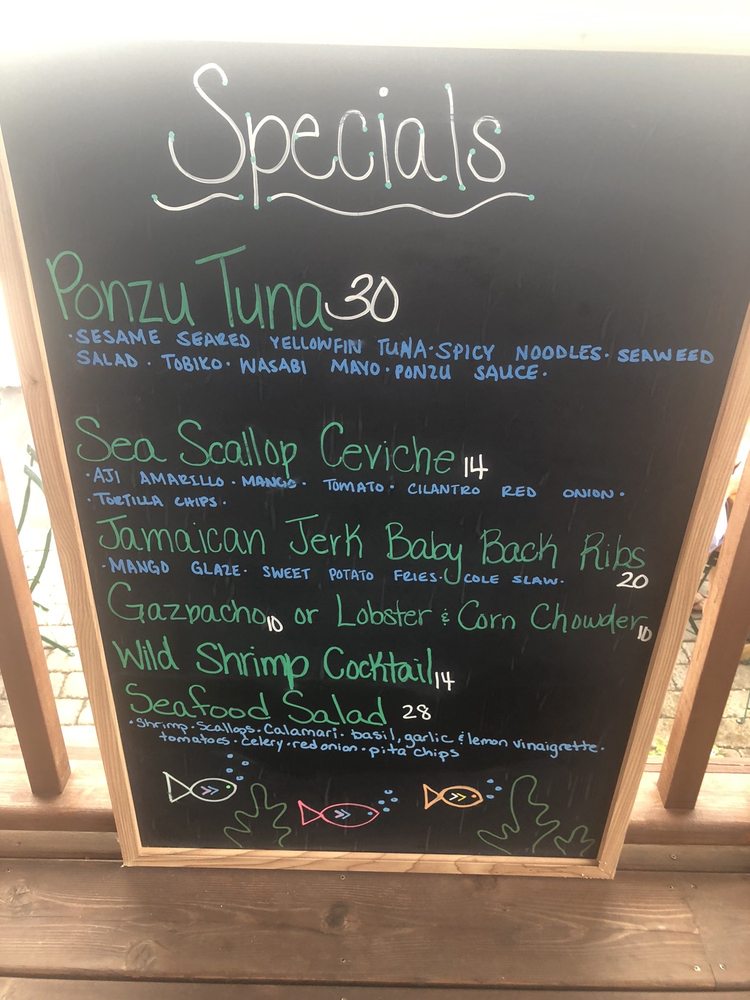 Specials
Ponzu Tuna 30
· SESAME SEARED YELLOWFIN TUNA · SPICY NOODLES · SEAWEED
SALAD · TOBIKO · WASABI MAYO · PONZU SAUCE ·
Sea Scallop Ceviche 14
· AJI AMARILLO · MANGO · TOMATO · CILANTRO RED ONION ·
· TORTILLA CHIPS ·
Jamaican Jerk Baby Back Ribs
· MANGO GLAZE · SWEET POTATO FRIES · COLE SLAW · 20
Gazpacho 10 or Lobster & Corn Chowder 10
Wild Shrimp Cocktail 14
Seafood Salad 28
· Shrimp · Scallops · Calamari · basil, garlic & lemon vinaigrette ·
tomatoes · celery · red onion · pita chips